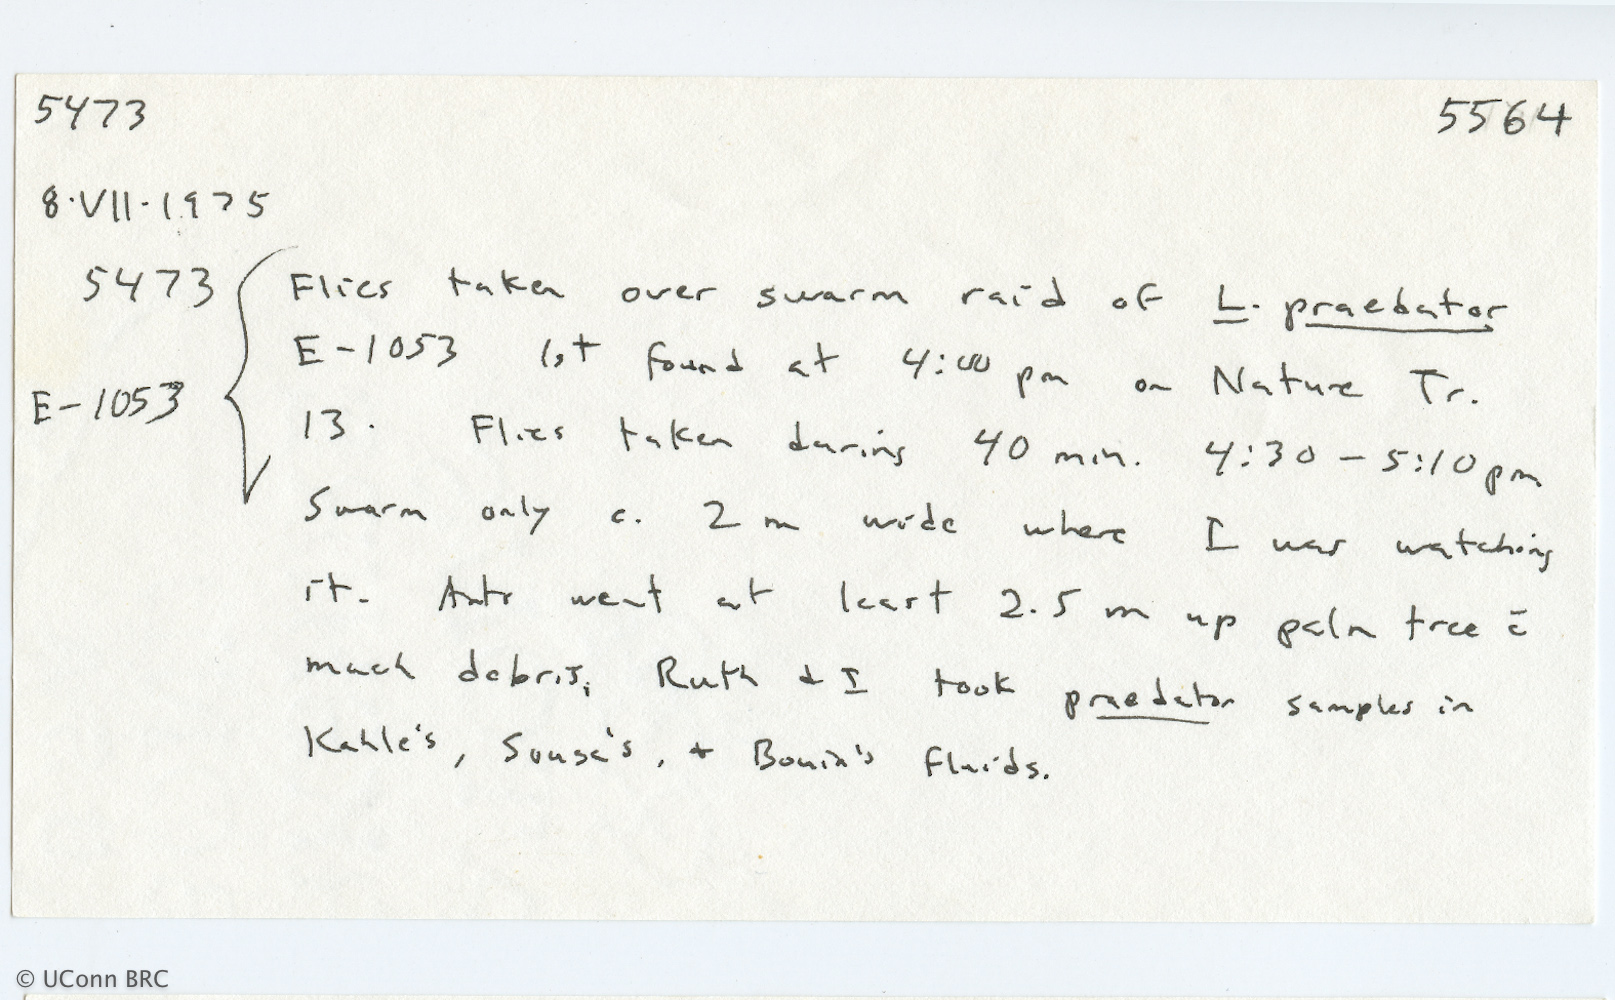 5473 5564
8·VII·1975
5473 Flies taken over swarm raid of L. praedator
E-1053 1st found at 4:00 pm on Nature Tr.
E-1053 13. Flies taken during 40 min. 4:30 - 5:10 pm
Swarm only c. 2 m wide where I was watching
it. Ants went at least 2.5 m up palm tree c̄
much debris; Ruth & I took praedator samples in
Kahle's, Sousa's, + Bouin's fluids.
© UConn BRC